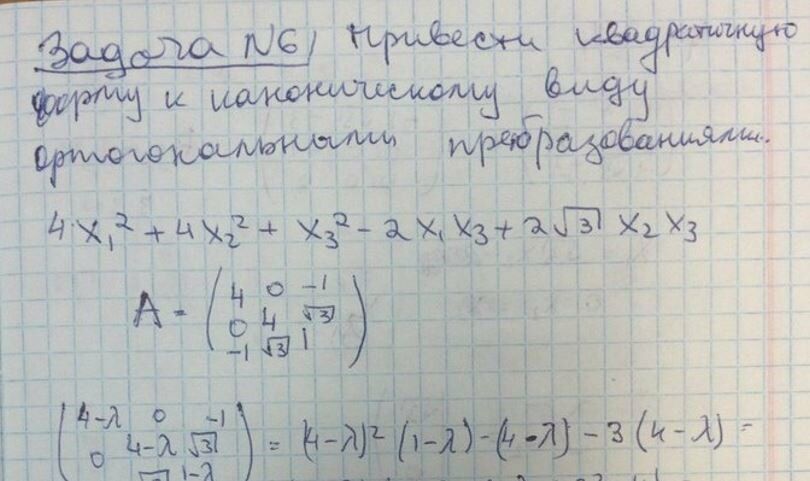 Задача N6, привести квадратичную
форму к каноническому виду
ортогональными преобразованиями.
4x₁² + 4x₂² + x₃² - 2x₁x₃ + 2√3 x₂x₃
A = (4 0 -1
0 4 √3
-1 √3 1)
(4-λ 0 -1
0 4-λ √3 = (4-λ)² (1-λ) - (4-λ) - 3(4-λ) =
√3 1-λ